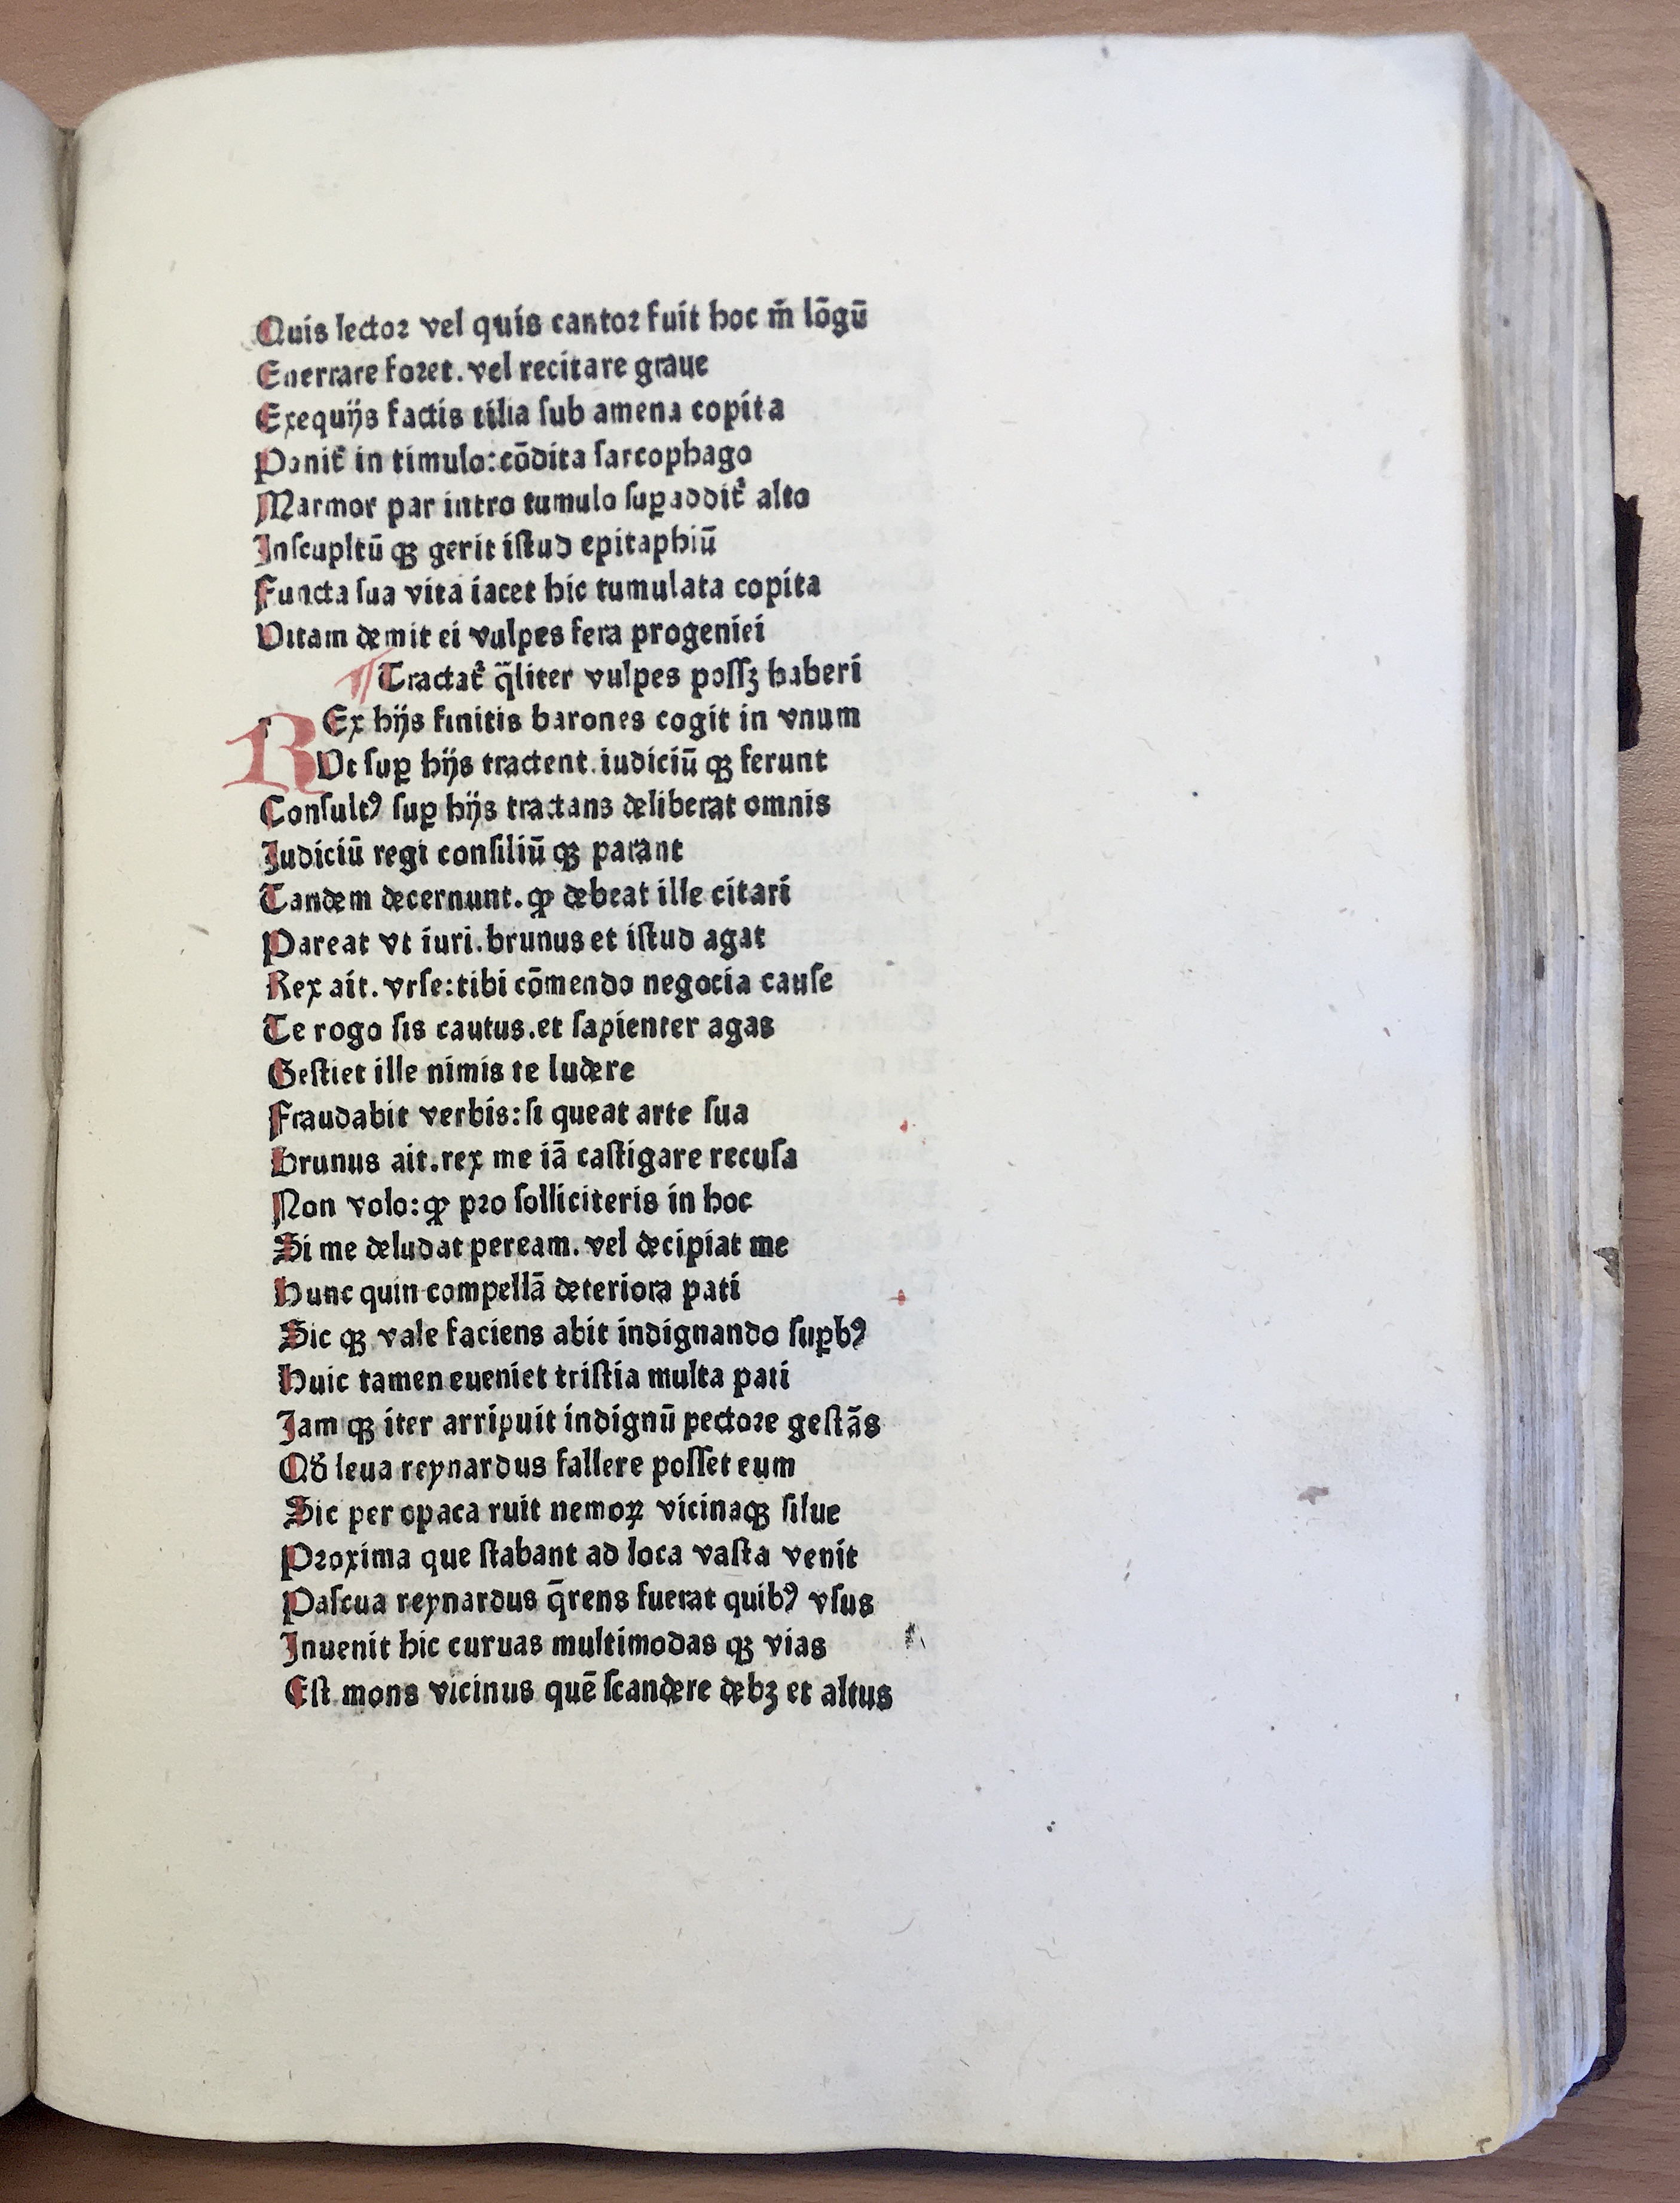 Quis lectoꝛ vel quis cantoꝛ fuit hoc m̄ lōgū
Enerrare foꝛet. vel recitare graue
Exequijs factis tilia ſub amena copita
Ponit᷑ in timulo: cōdita ſarcophago
Marmor par intro tumulo ſuꝑaddit᷑ alto
Inſcupltū qꝫ gerit iſtud epitaphiū
Functa ſua vita iacet hic tumulata copita
Vitam demit ei vulpes fera progeniei
¶ Tractat᷑ q̄liter vulpes poſſꝫ haberi
REx hijs finitis barones cogit in vnum
Vt ſuꝑ hijs tractent. iudiciū qꝫ ferunt
Conſultꝰ ſuꝑ hijs tractans deliberat omnis
Judiciū regi conſiliū qꝫ parant
Tandem decernunt. ꝙ debeat ille citari
Pareat vt iuri. brunus et iſtud agat
Rex ait. vrſe: tibi cōmendo negocia cauſe
Te rogo ſis cautus. et ſapienter agas
Geſtiet ille nimis te ludere
Fraudabit verbis: ſi queat arte ſua
Brunus ait. rex me iā caſtigare recuſa
Non volo: ꝙ pꝛo ſolliciteris in hoc
Si me deludat peream. vel decipiat me
Hunc quin compellā deteriora pati
Sic qꝫ vale faciens abit indignando ſuꝑbꝰ
Huic tamen eueniet triſtia multa pati
Jam qꝫ iter arripuit indignū pectoꝛe geſtās
Qđ leua reynardus fallere poſſet eum
Sic per opaca ruit nemoꝝ vicinaqꝫ ſilue
Pꝛoxima que ſtabant ad loca vaſta venit
Paſcua reynardus q̄rens fuerat quibꝰ vſus
Inuenit hic curuas multimodas qꝫ vias
Eſt mons vicinus quē ſcandere debꝫ et altus